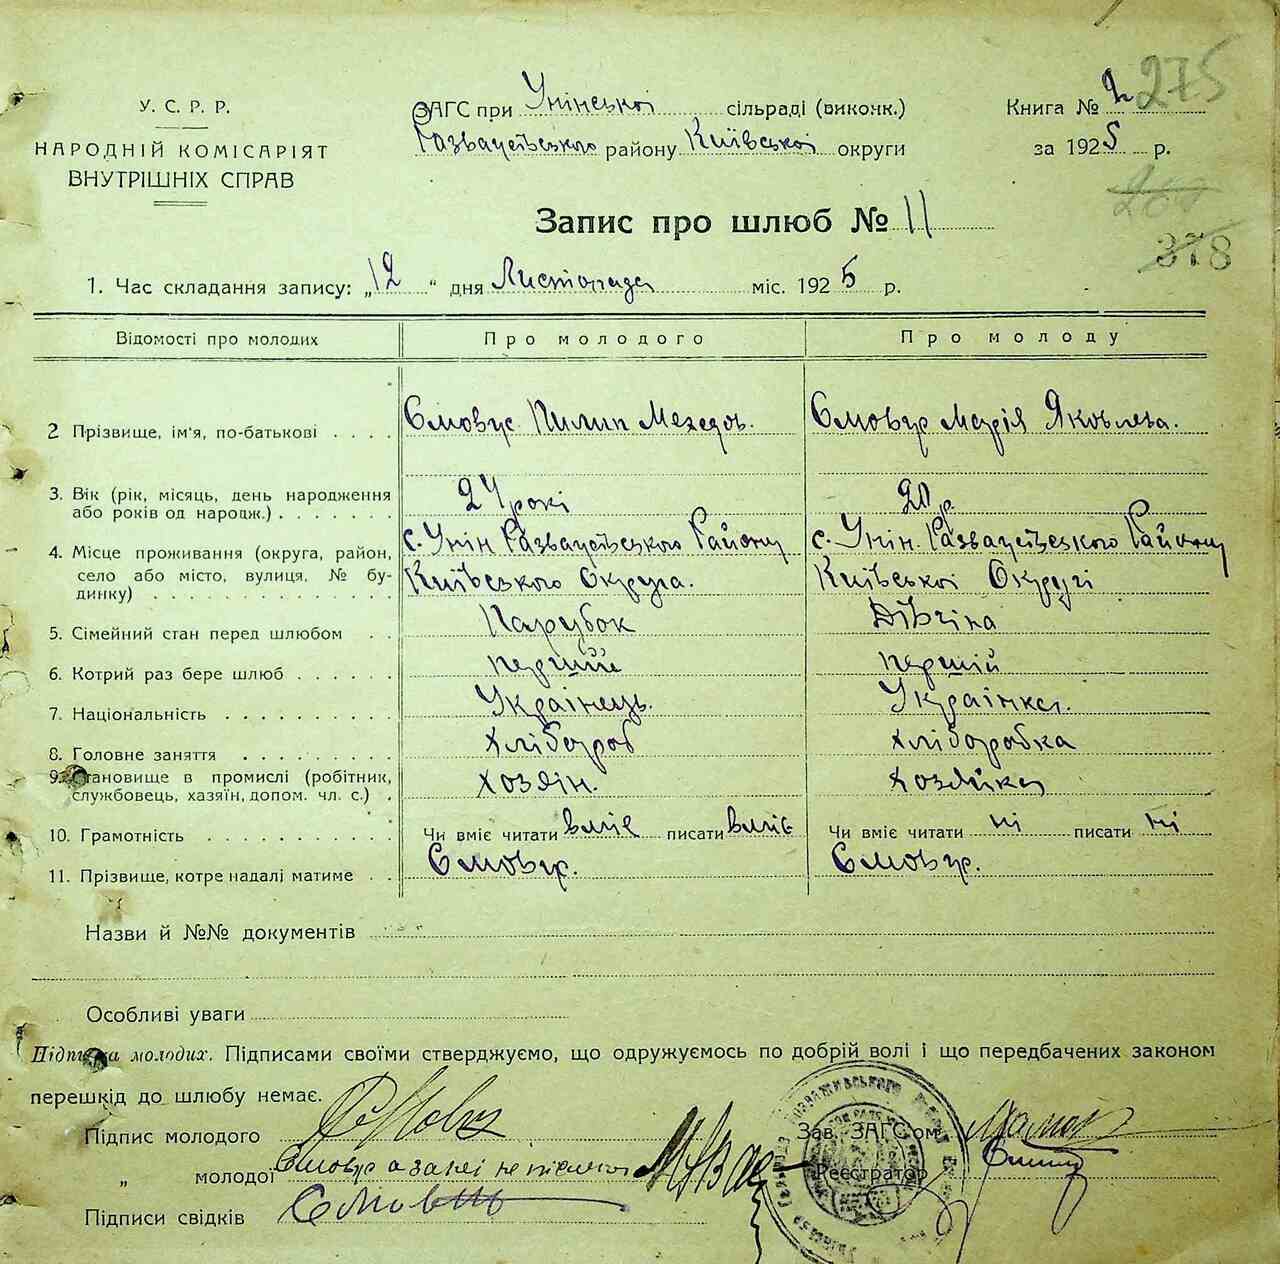 275
У. С. Р. Р.
НАРОДНІЙ КОМІСАРІЯТ
ВНУТРІШНІХ СПРАВ
ЗАГС при Унінської сільраді (виконк.)
Розважівського району Київської округи
Книга № 2
за 1925 р.
Запис про шлюб № 11
378
1. Час складання запису: „12“ дня Листопада міс. 1925 р.
Відомості про молодих Про молодого Про молоду
2 Прізвище, ім'я, по-батькові . . . . Ємовус Пилип Мехедов. Ємовус Марія Яковлева.
3. Вік (рік, місяць, день народження
або років од народж.) . . . . . . . 24 рокі 20 р.
4. Місце проживання (округа, район, с. Унін Розважівського Району с. Унін. Розважівського Району
село або місто, вулиця, № бу- Київського Округа. Київської Округі
динку) . . . . . . . . . . . .
5. Сімейний стан перед шлюбом . . Парубок Дівчіна
6. Котрий раз бере шлюб . . . . . . перший першій
7. Національність . . . . . . . . . . Українець. Українка.
8. Головне заняття . . . . . . . . . Хлібороб Хліборобка
9. Становище в промислі (робітник,
службовець, хазяїн, допом. чл. с.) . Хозяін. Хозяйка
10. Грамотність . . . . . . . . . . Чи вміє читати вміє писати вміє Чи вміє читати ні писати ні
11. Прізвище, котре надалі матиме . . Ємовус. Ємовус.
Назви й №№ документів
Особливі уваги
Підписка молодих. Підписами своїми стверджуємо, що одружуємось по добрій волі і що передбачених законом
перешкід до шлюбу немає.
Підпис молодого
Зав. ЗАГС'ом
„ молодої Ємовус а за неї не пісьмену
Реєстратор
Підписи свідків